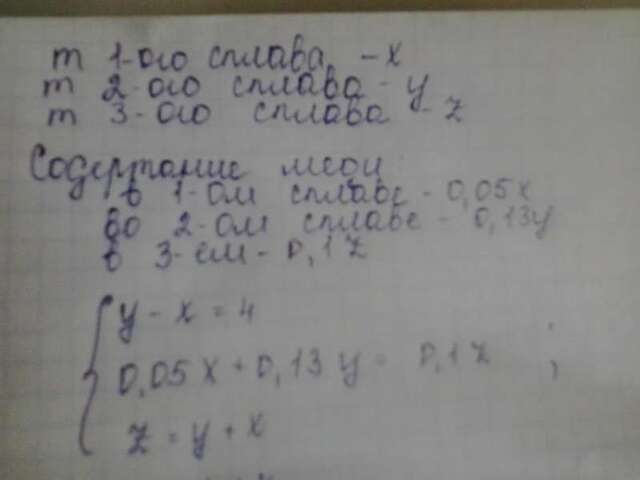 m 1-ого сплава - x
m 2-ого сплава - y
m 3-ого сплава - z
Содержание меди
в 1-ом сплаве - 0,05x
во 2-ом сплаве - 0,13y
в 3-ем - 0,1z
y - x = 4
0,05x + 0,13y = 0,1z ;
z = y + x